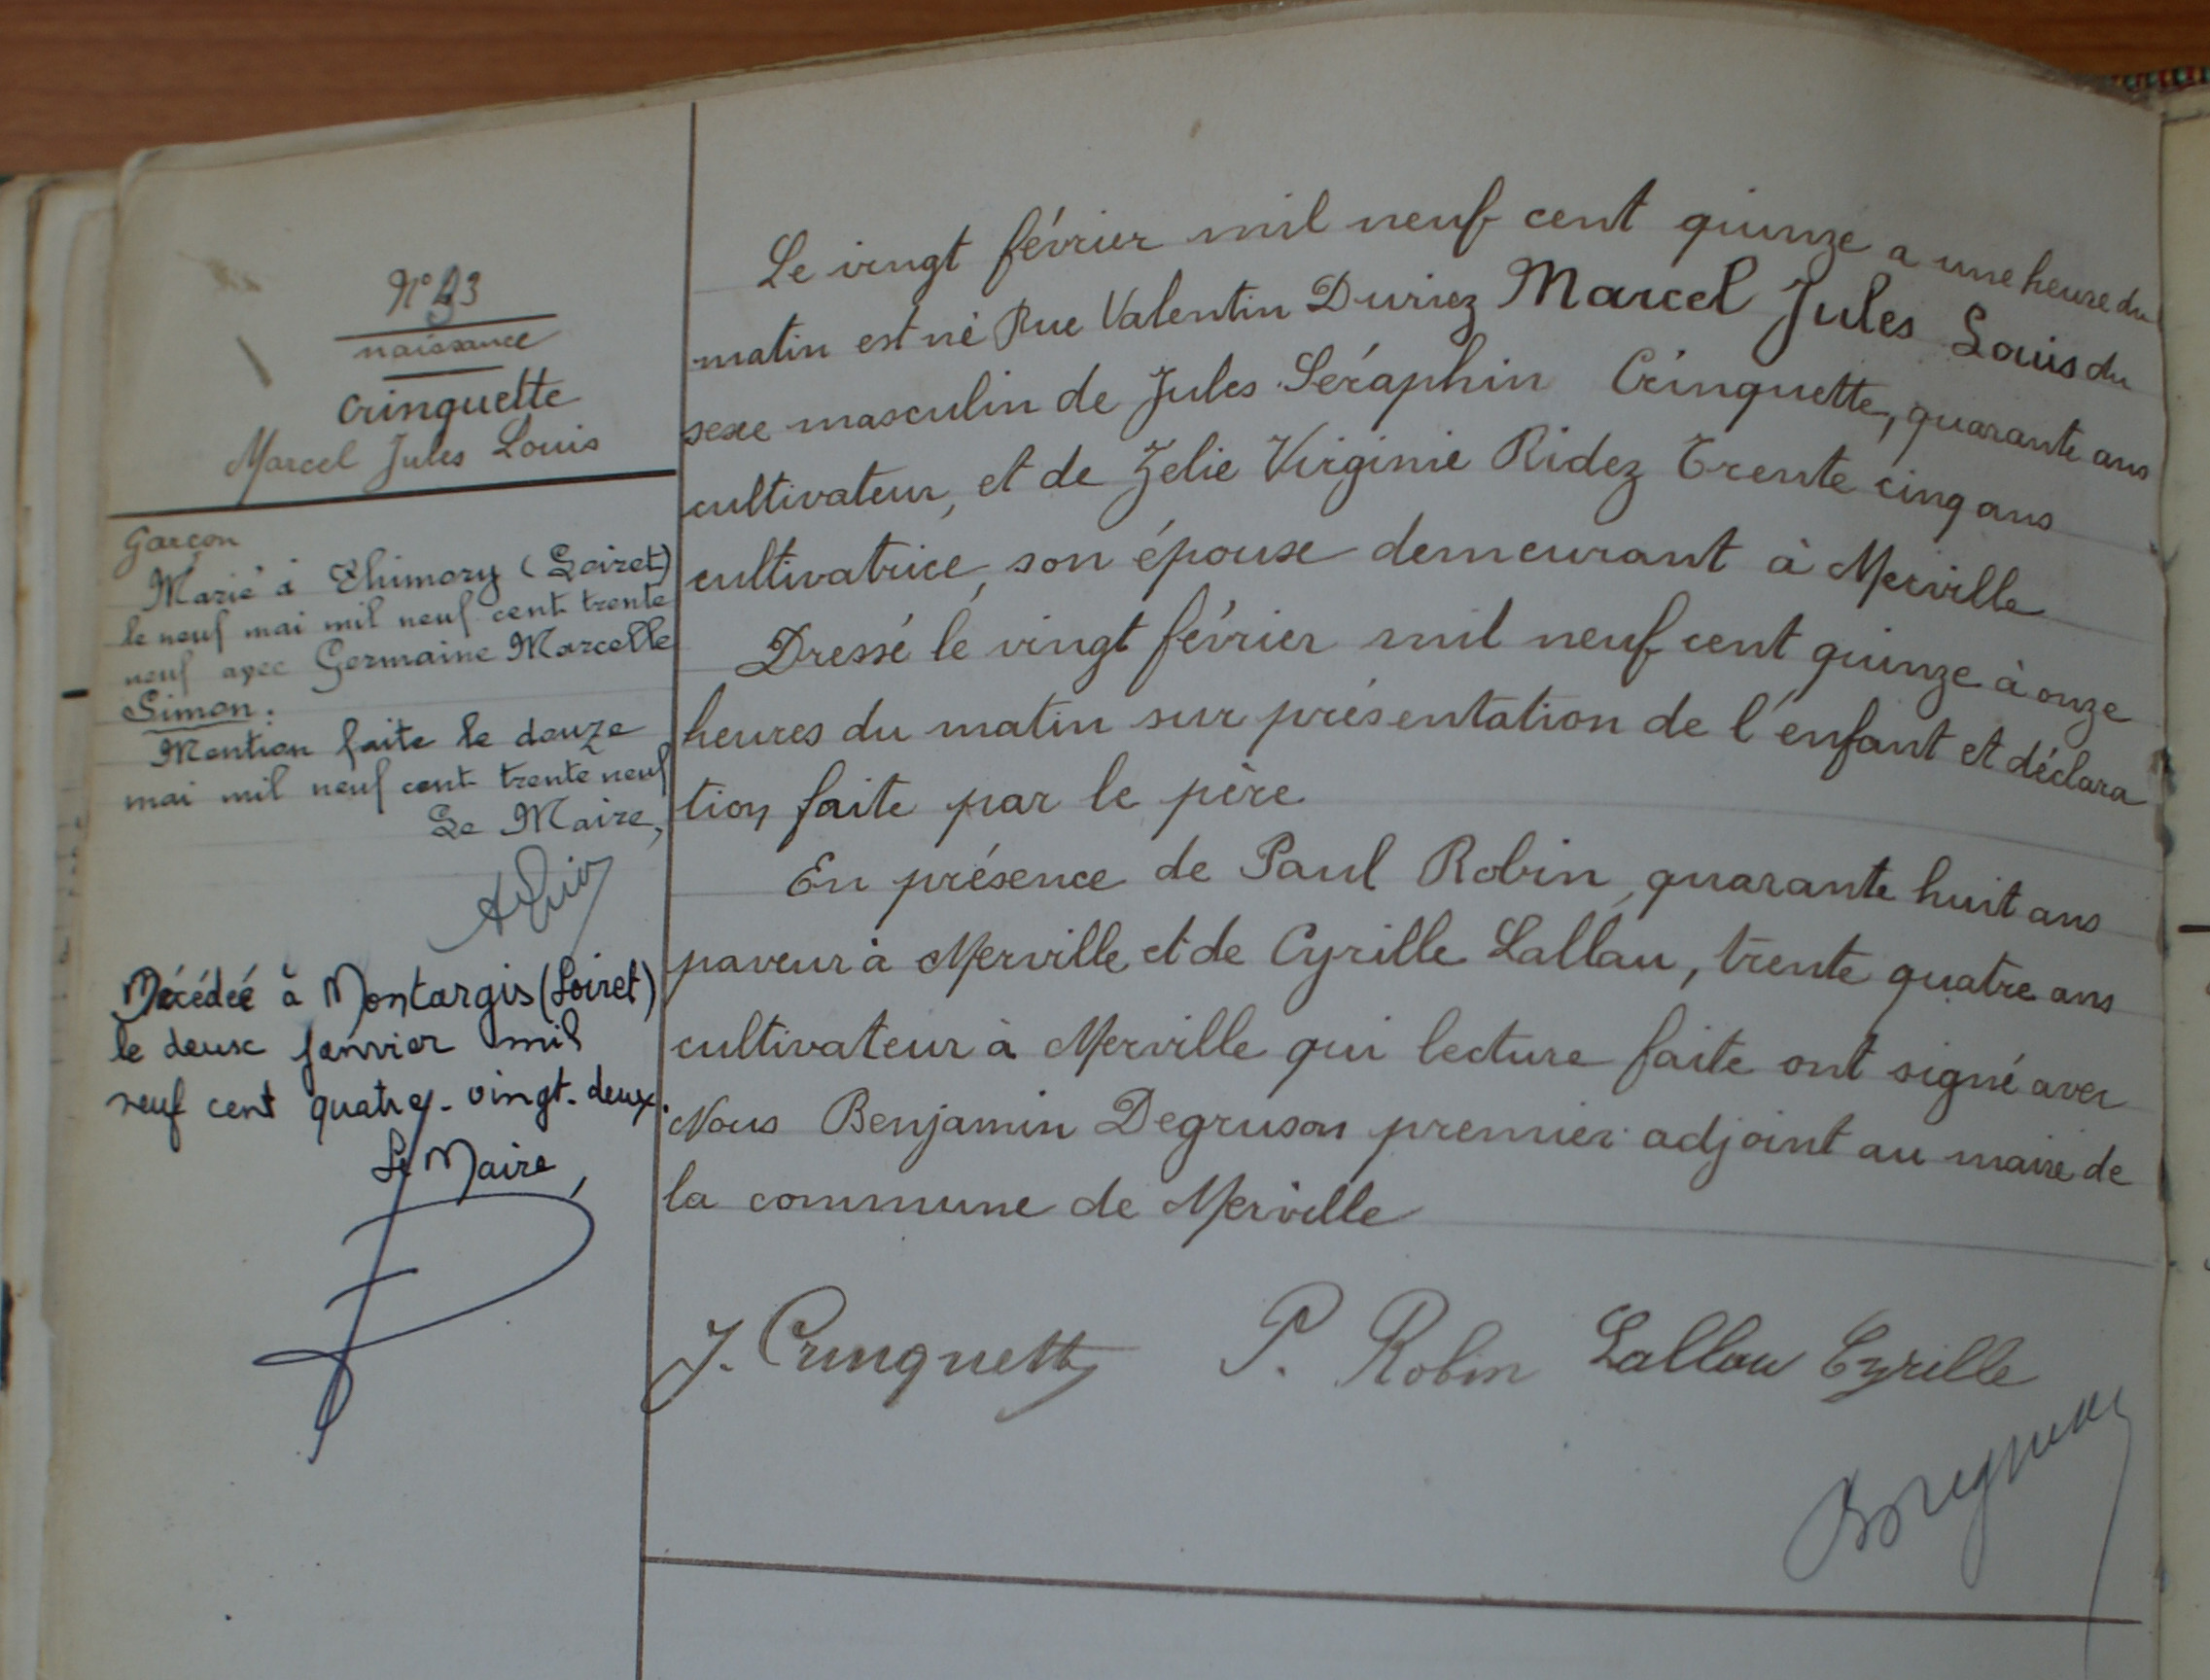 naissance
Cringuette
Marcel Jules Louis
Garçon
Marié à Thimory (Loiret)
le neuf mai mil neuf cent trente
neuf avec Germaine Marcelle
Simon.
Mention faite le douze
mai mil neuf cent trente neuf
Le Maire,
Décédé à Montargis (Loiret)
le deux janvier mil
neuf cent quatre-vingt-deux.
Le Maire,
Le vingt février mil neuf cent quinze a une heure du
matin est né Rue Valentin Duriez Marcel Jules Louis du
sexe masculin de Jules Séraphin Cringuette, quarante ans
cultivateur, et de Zelie Virginie Ridez Trente cinq ans
cultivatrice, son épouse demeurant à Merville
Dressé le vingt février mil neuf cent quinze à onze
heures du matin sur présentation de l'enfant et déclara
tion faite par le père
En présence de Paul Robin, quarante huit ans
paveur à Merville et de Cyrille Lallau, trente quatre ans
cultivateur à Merville qui lecture faite ont signé avec
Nous Benjamin Degruson premier adjoint au maire de
la commune de Merville
J. Cringuette P. Robin Lallau Cyrille